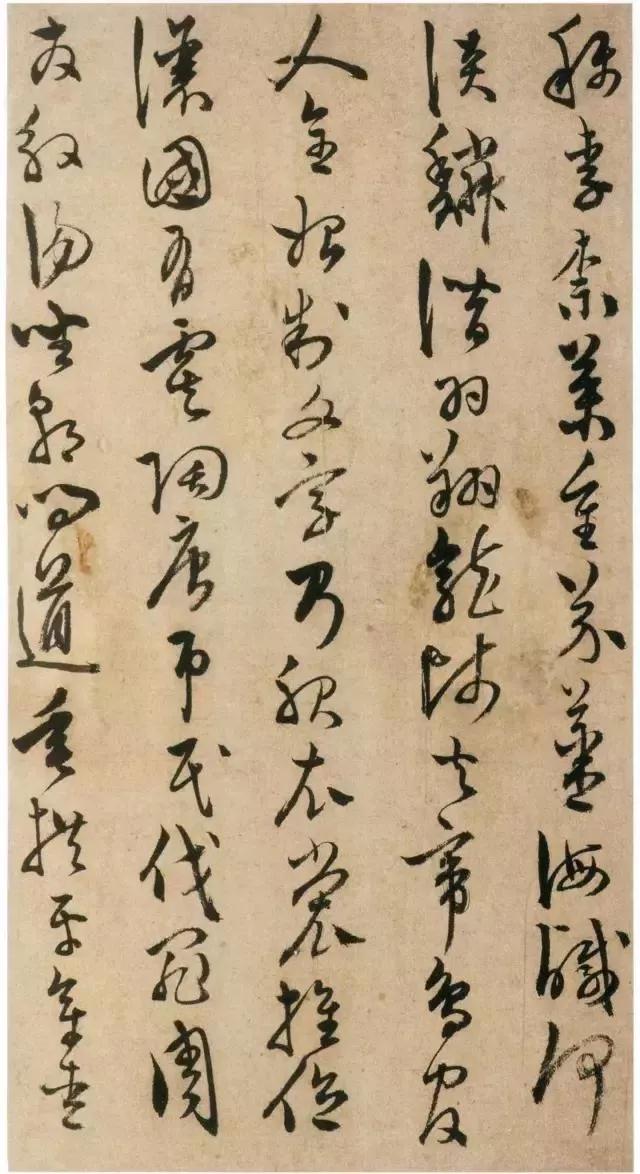 珍李柰菜重芥薑海鹹河
淡鱗潛羽翔龍師火帝鳥官
人皇始制文字乃服衣裳推位
讓國有虞陶唐弔民伐罪周
發殷湯坐朝問道垂拱平章愛